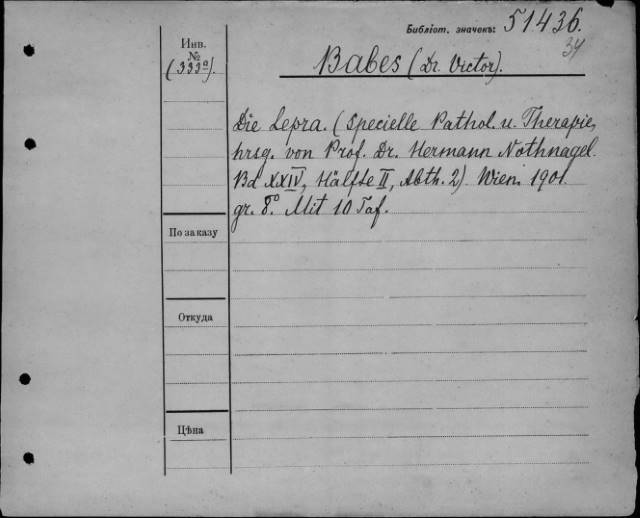 Библіот. значекъ: 51436.
34
Инв.
№
(333а).
Babes (Dr. Victor).
Die Lepra. (Specielle Pathol. u. Therapie,
hrsg. von Prof. Dr. Hermann Nothnagel.
Bd XXIV, Hälfte II, Abth. 2). Wien. 1901.
gr. 8º. Mit 10 Taf.
По заказу
Откуда
Цѣна